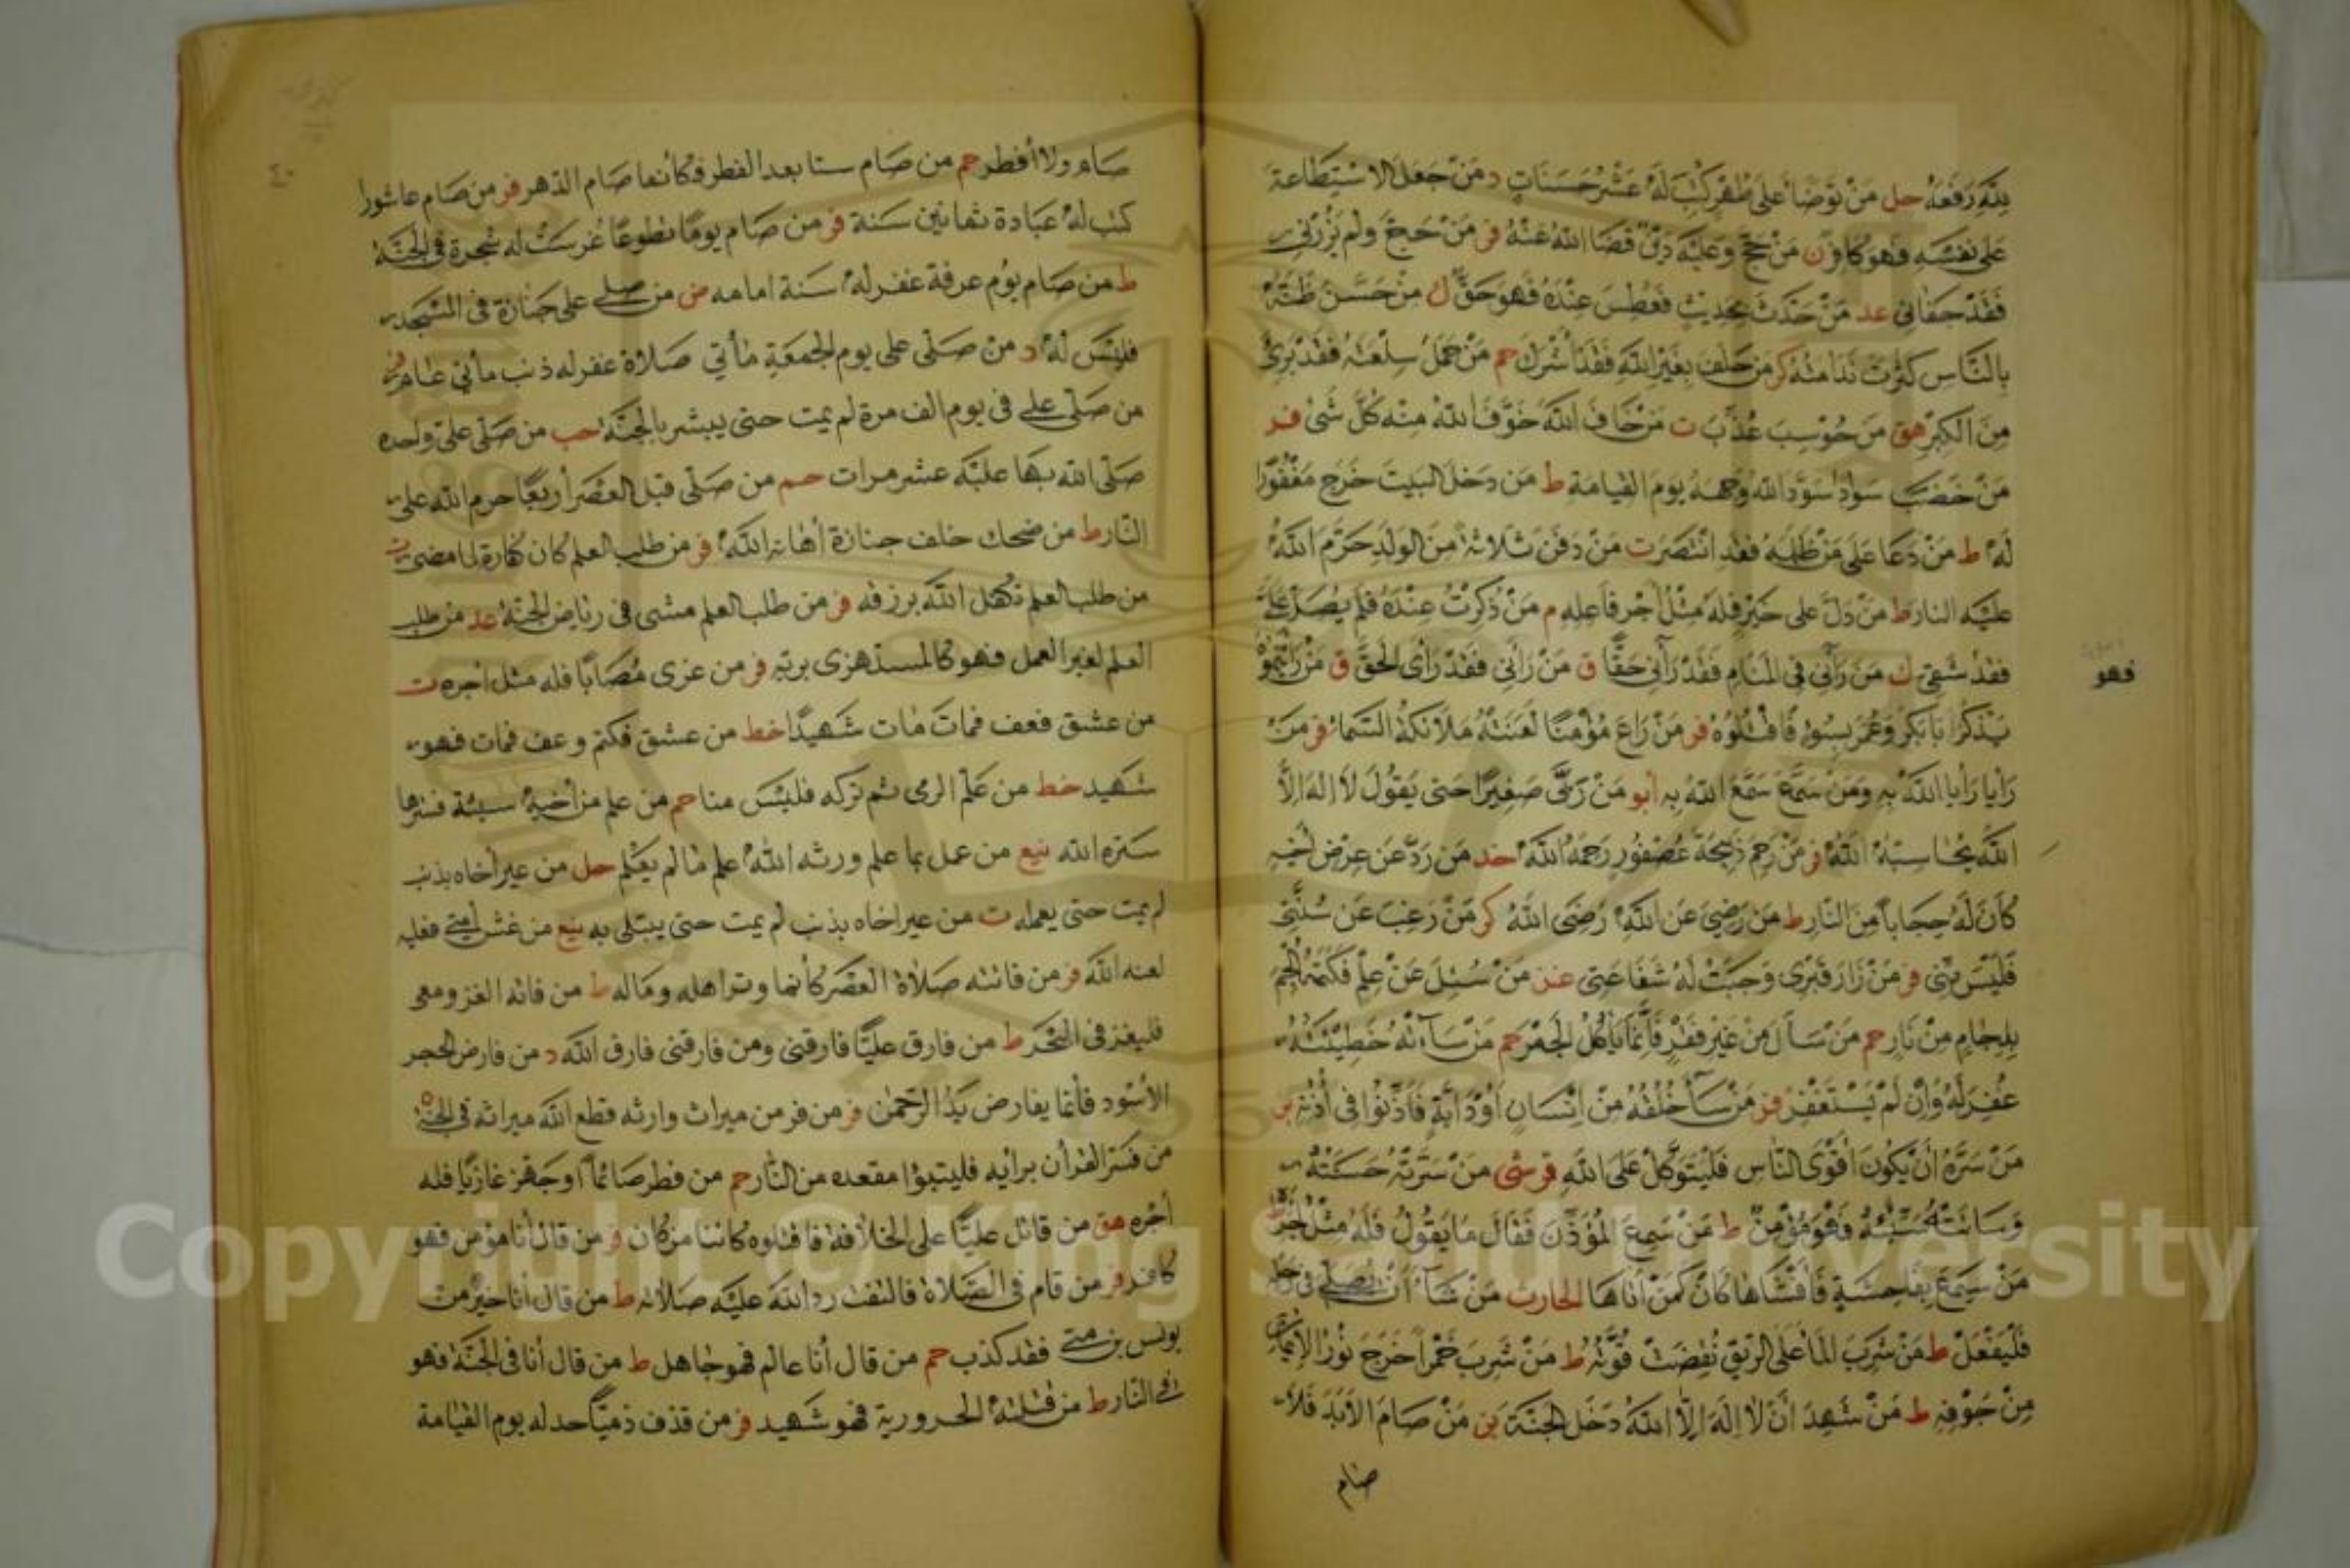 لله رفعه حل من توضأ على طهر كتب له عشر حسنات د من جعل الاستطاعة
على نفسه فهو كافر ن من حج وعليه دين قضا الله عنه فر من حج ولم يزرني
فقد جفاني عد من حدث بحديث فعطس عنده فهو حق ك من حسن ظنه
بالناس كثرت ندامته كر من حلف بغير الله فقد أشرك حم من حمل سلعته فقد برئ
من الكبر هق من حوسب عذب ت من خاف الله خوف الله منه كل شئ فر
من خضب سوادا سود الله وجهه يوم القيامة ط من دخل البيت خرج مغفورا
له ط من دعا على من ظلمه فقد انتصر ت من دفن ثلاثة من الولد حرم الله
عليه النار ط من دل على خير فله مثل أجر فاعله م من ذكرت عنده فلم يصل علي
فقد شقي ك من رآني في المنام فقد رآني حقا ق من رآني فقد رأى الحق ق من رأيتموه
فهو
يذكر أبا بكر وعمر بسوء فاقتلوه فر من راع مؤمنا لعنته ملائكة السماء فر من
رايا رايا الله به ومن سمع سمع الله به أبو من ربى صغيرا حتى يقول لا إله إلا
الله يحاسبه الله فر من رحم ذبيحة عصفور رحمه الله خد من رد عن عرض أخيه
كان له حجابا من النار ط من رضي عن الله رضى الله كر من رغب عن سنتي
فليس مني فر من زار قبري وجبت له شفاعتي عد من سئل عن علم فكتمه ألجم
بلجام من نار حم من سأل من غير فقر فإنما يأكل الجمر حم من ساءته خطيئته
غفر له وإن لم يستغفر فر من سآ خلقه من انسان أو دابة فأذنوا في أذنه بن
من سره أن يكون أقوى الناس فليتوكل على الله قرشى من سرته حسنته
وساءته سيئته فهو مؤمن ط من سمع المؤذن فقال ما يقول فله مثل أجره
من سمع بفاحشة فأفشاها كان كمن أتاها الحارث من شآ أن يصلي في
فليفعل ط من شرب الماء على الريق نقصت قوته ط من شرب خمرا خرج نور الإيمان
من جوفه ط من شهد أن لا إله إلا الله دخل الجنة بن من صام الأبد فلا
صام
صام ولا أفطر حم من صام ستا بعد الفطر فكأنما صام الدهر فر من صام عاشورا
كتب له عبادة ثمانين سنة فر من صام يوما تطوعا غرست له شجرة في الجنة
ط من صام يوم عرفة غفر له سنة امامه ض من صلى على جنازة في المسجد
فليس له د من صلى على يوم الجمعة مأتي صلاة غفر له ذنب مأتي عام فر
من صلى علي في يوم الف مرة لم يمت حتى يبشر بالجنة حب من صلى علي واحدة
صلى الله بها عليه عشر مرات حم من صلى قبل العصر أربعا حرم الله على
النار ط من ضحك خلف جنازة أهانه الله فر من طلب العلم كان كفارة لما مضى ت
من طلب العلم تكفل الله برزقه فر من طلب العلم مشى في رياض الجنة عد من طلب
العلم لغير العمل فهو كالمستهزى بربه فر من عزى مصابا فله مثل أجره ت
من عشق فعف فمات مات شهيدا خط من عشق فكتم وعف فمات فهو
شهيد خط من علم الرمى ثم تركه فليس منا حم من علم من أخيه سيئة فسترها
ستره الله نيع من عمل بما علم ورثه الله علم ما لم يعلم حل من عير أخاه بذنب
لم يمت حتى يعمله ت من عير اخاه بذنب لم يمت حتى يبتلى به نيع من غش أمتي فعليه
لعنه الله فر من فاتته صلاة العصر كأنما وتر اهله وماله ط من فاته الغزو معى
فليغز في البحر ط من فارق عليا فارقنى ومن فارقنى فارق الله د من فارض الحجر
الأسود فأنما يفارض يد الرحمن فر من فر من ميراث وارثه قطع الله ميراثه في الجنة ه
من فسر القرأن برأيه فليتبوا مقعده من النار حم من فطر صائما أو جهز غازيا فله
أجره هق من قاتل عليا على الخلافة فاقتلوه كائنا من كان فر من قال أنا مؤمن فهو
كافر فر من قام في الصلاة فالتفت رد الله عليه صلاته ط من قال أنا خير من
يونس بن متى فقد كذب حم من قال أنا عالم فهو جاهل ط من قال أنا في الجنة فهو
في النار ط من قتلته الحرورية فهو شهيد فر من قذف ذميا حد له يوم القيامة
Copyright © King Saud University